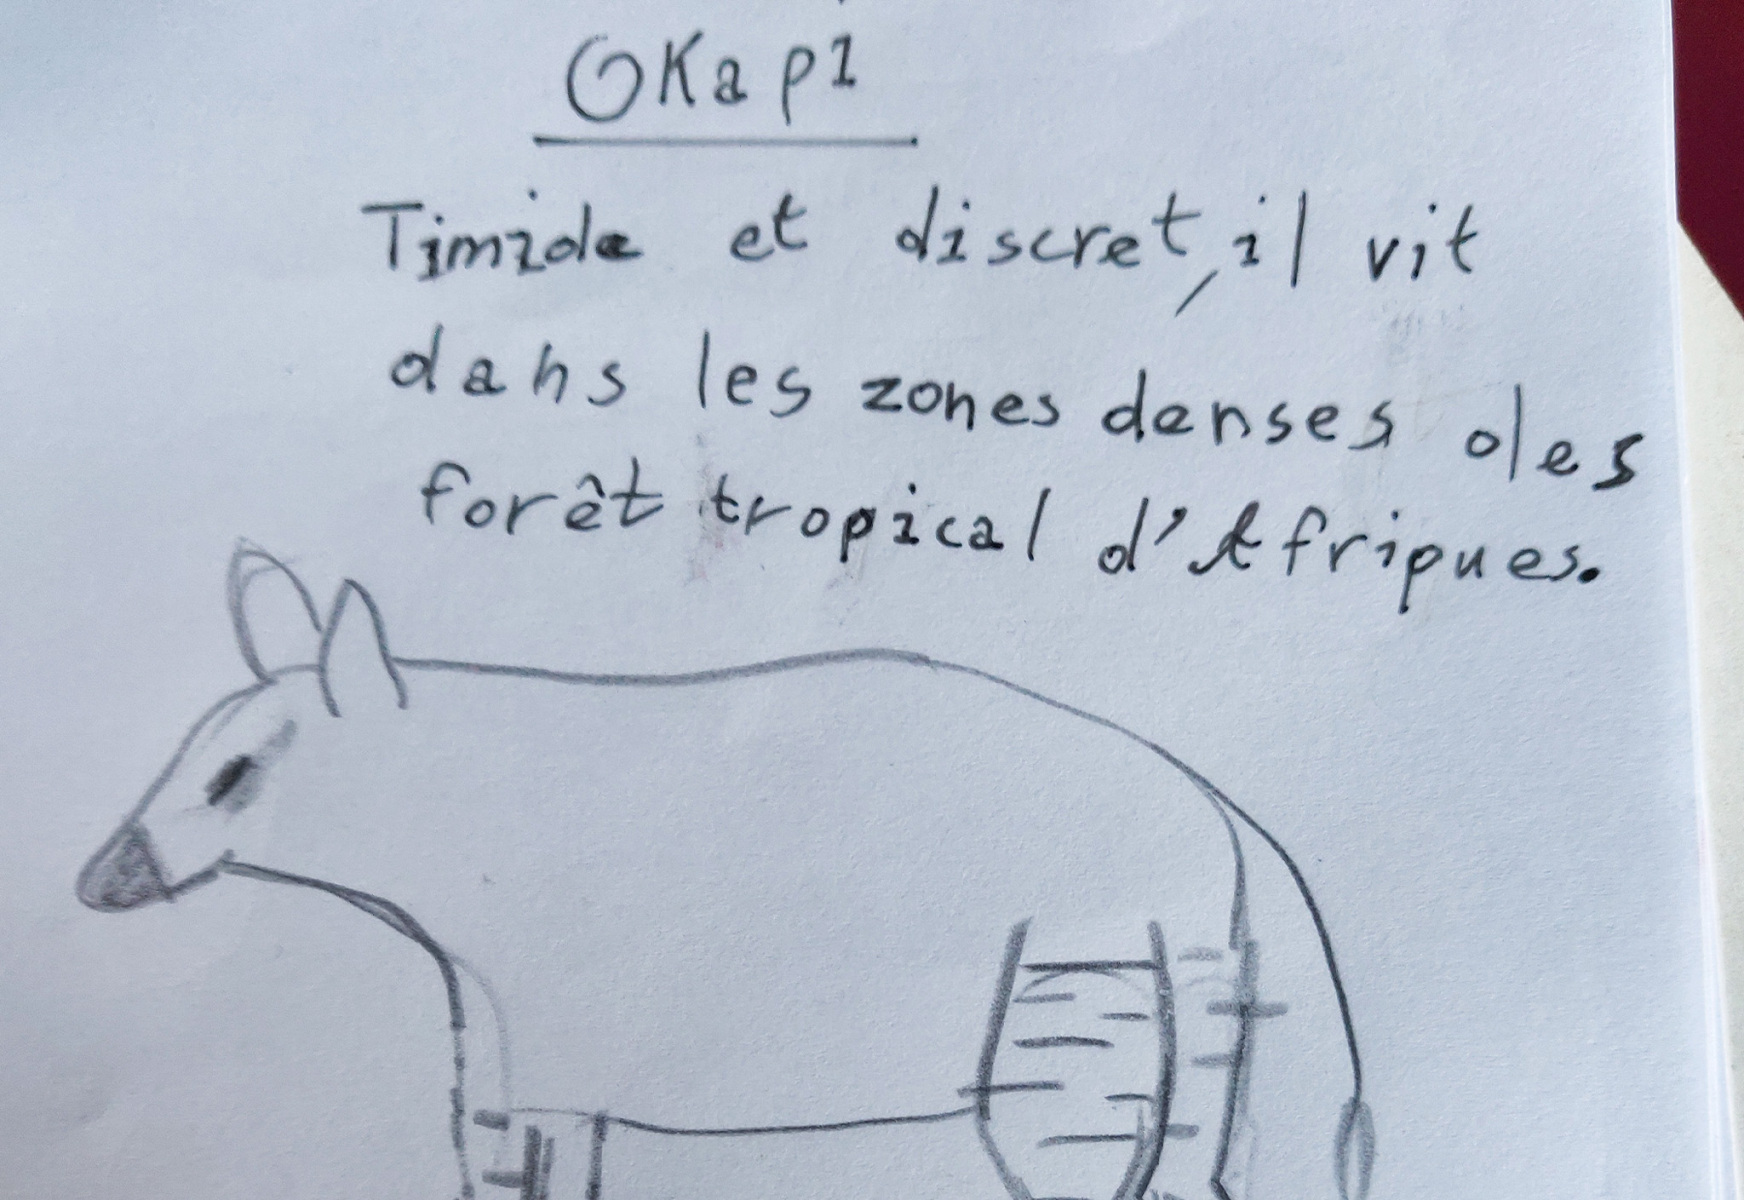 Okapi
Timide et discret, il vit
dans les zones denses des
forêt tropical d'Afriques.